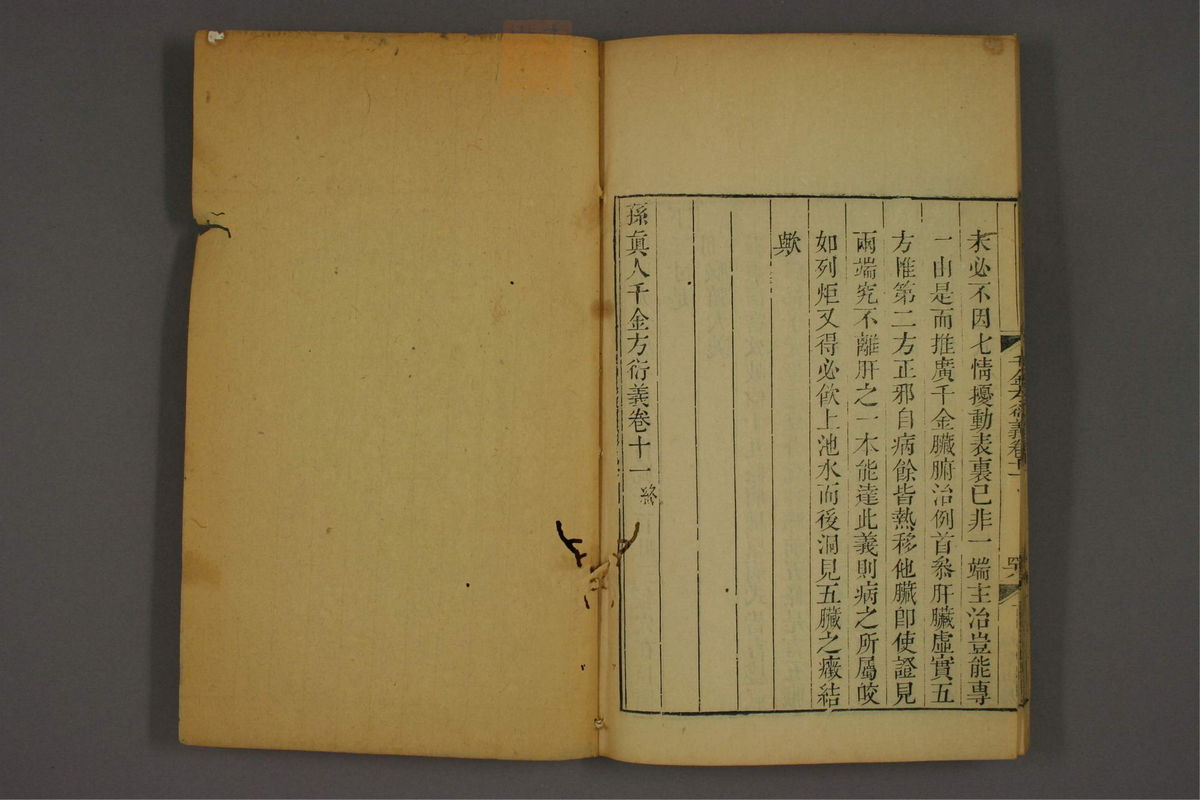 未必不因七情擾動表裏已非一端主治豈能專
一由是而推廣千金臟腑治例首叅肝臟虛實五
方惟第二方正邪自病餘皆熱移他臟卽使證見
兩端究不離肝之一本能達此義則病之所屬皎
如列炬又得必飮上池水而後洞見五臟之癥結
歟
孫眞人千金方衍義卷十一 終
千金方衍義卷十一